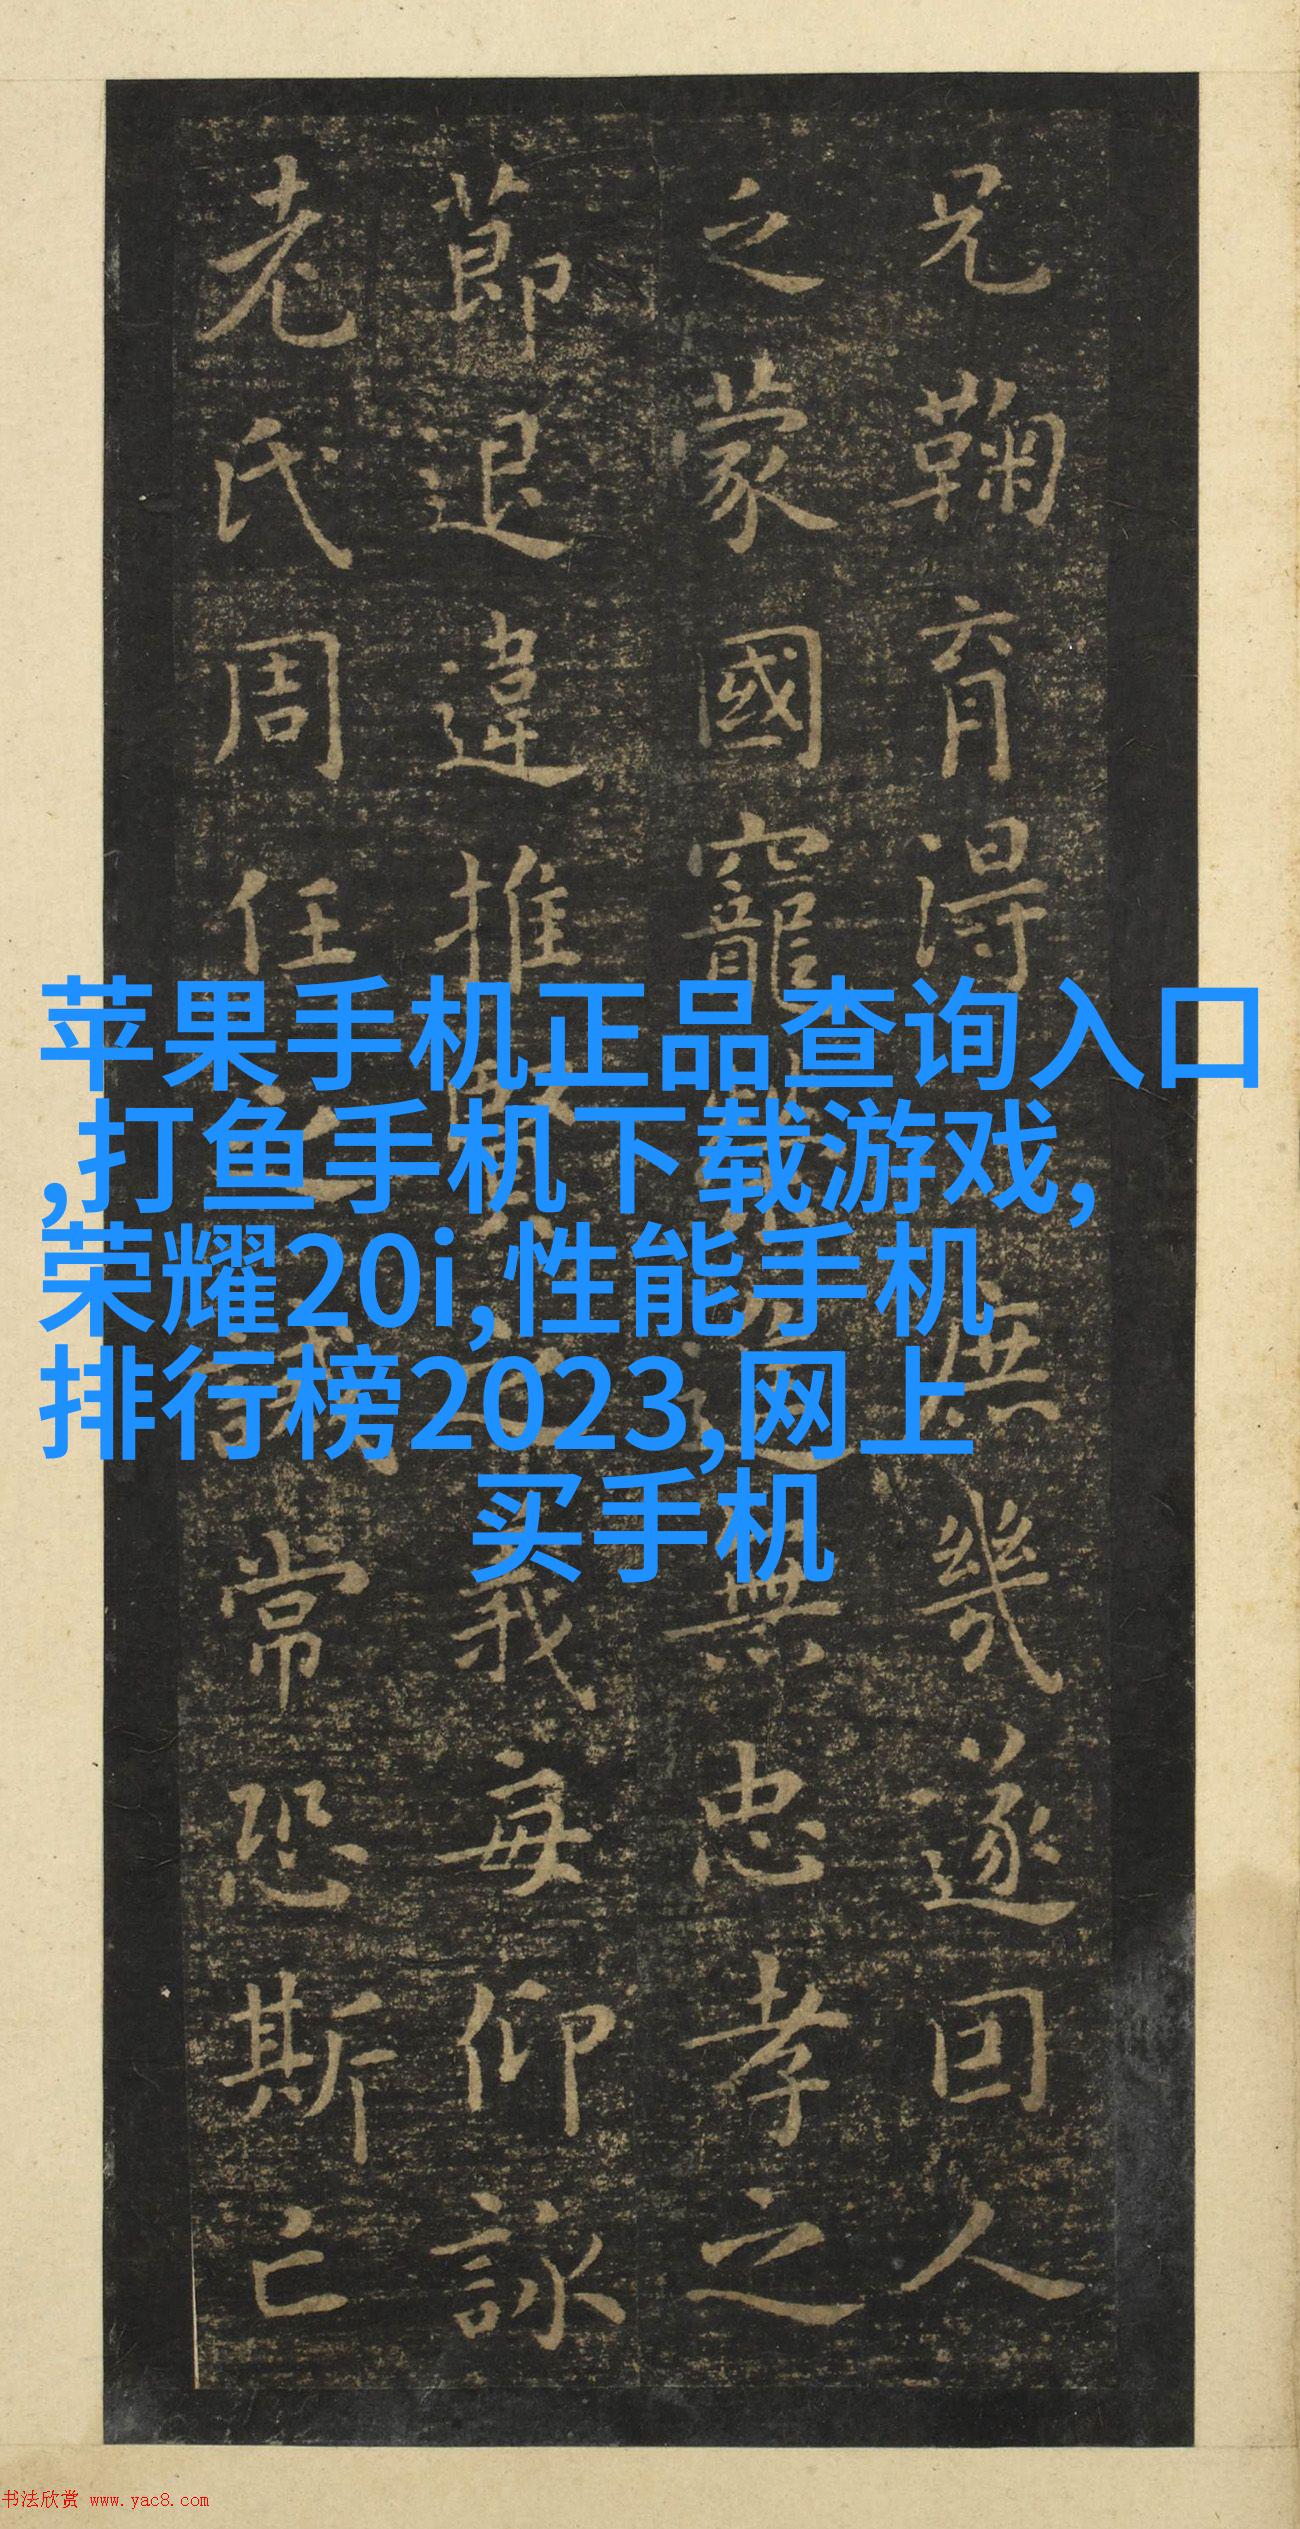 苹果手机正品查询入口
,打鱼手机下载游戏,
荣耀20i,性能手机
排行榜2023,网上
买手机
兄鞠育得庶幾遂因人
乏蒙國寵進無忠孝之
莭退違推賢之義每仰詠
老氏周任之誡常恐斯亡
书法欣赏 www.yac8.com